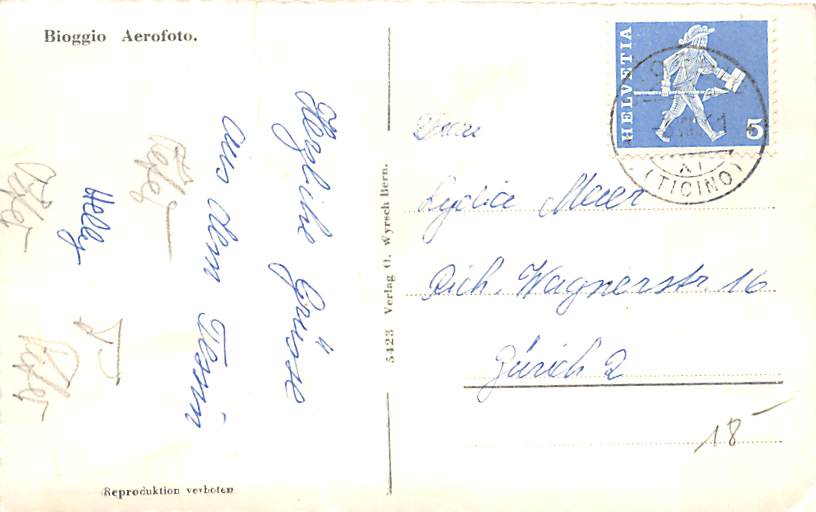 Bioggio Aerofoto.
Herzliche Grüsse
aus dem Tessin
Helly
5423 Verlag O. Wyrsch Bern.
HELVETIA
5
XI
(TICINO)
Lydia Meier
Rich. Wagnerstr. 16
Zürich 2
18
Reproduktion verboten